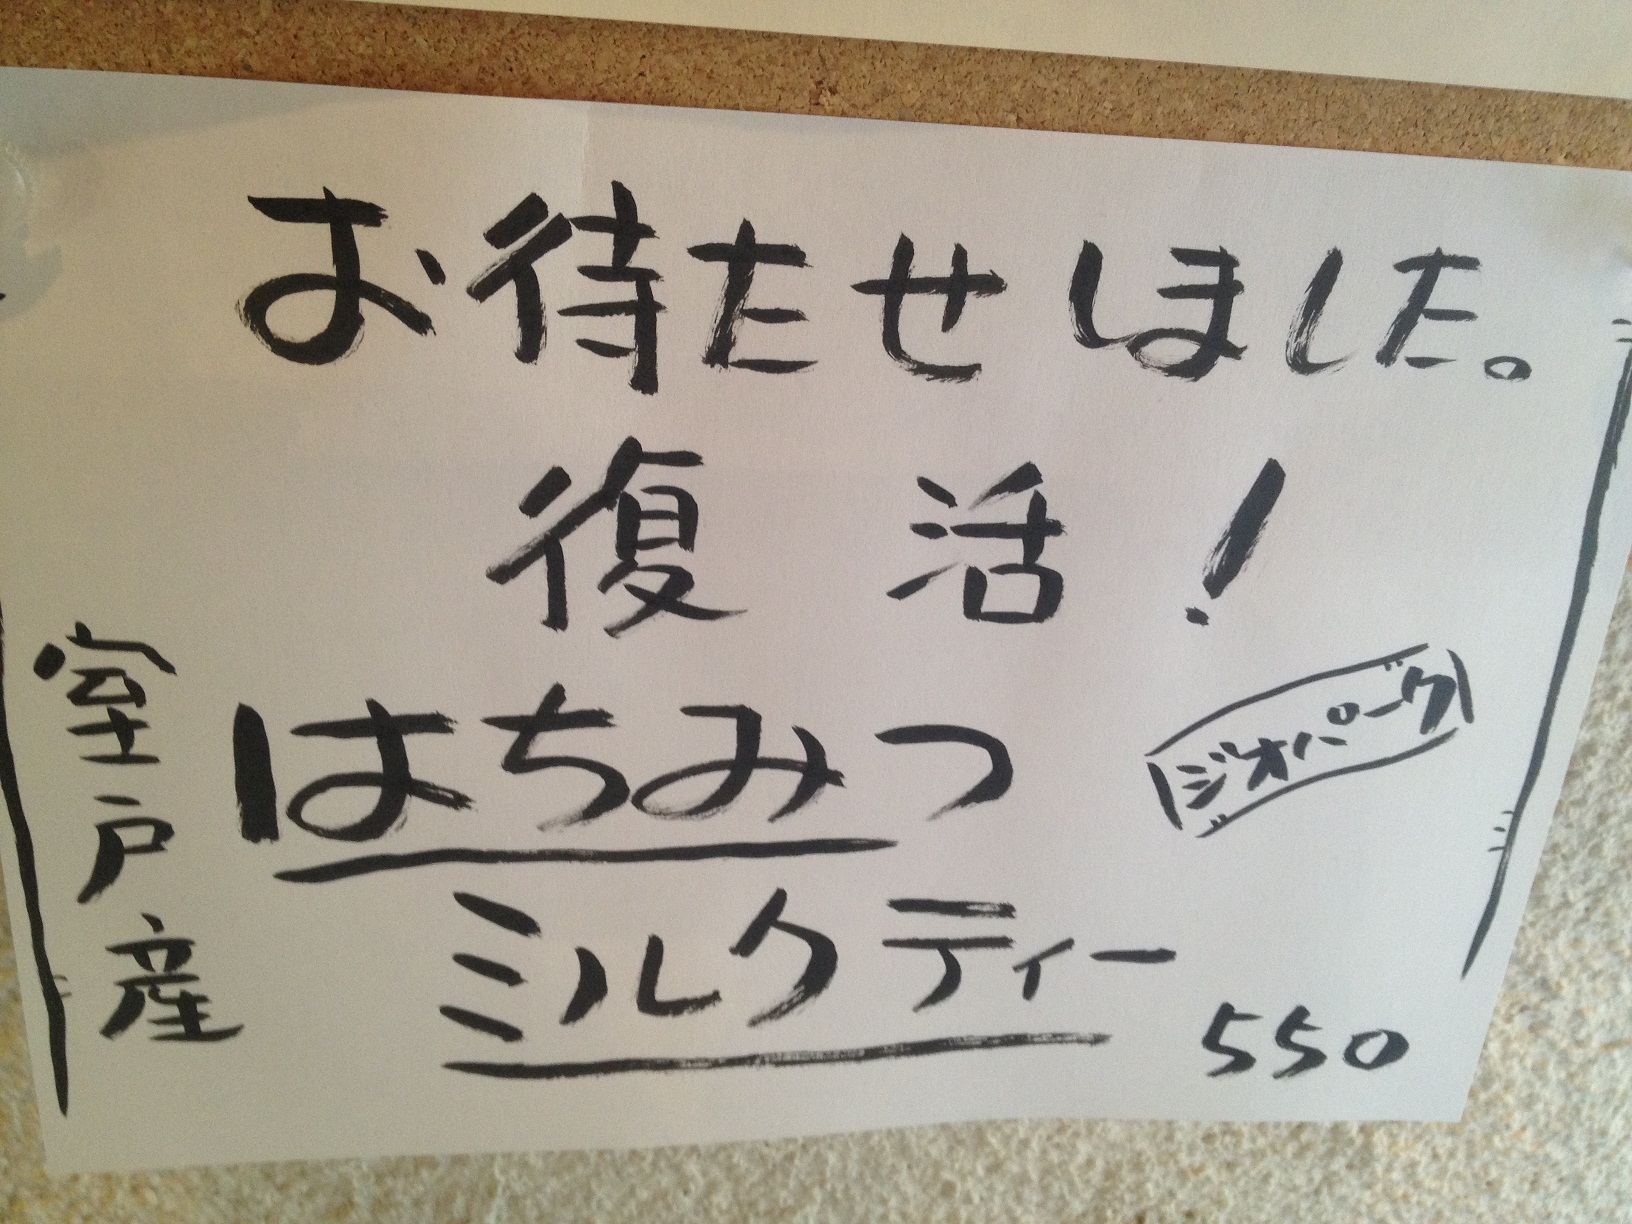 お待たせしました。
復活!
室戸産
はちみつ
ジオパーク
ミルクティー
550